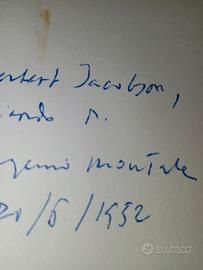 erbert Jacobson,
ugenio Montale
20/6/1952
subito